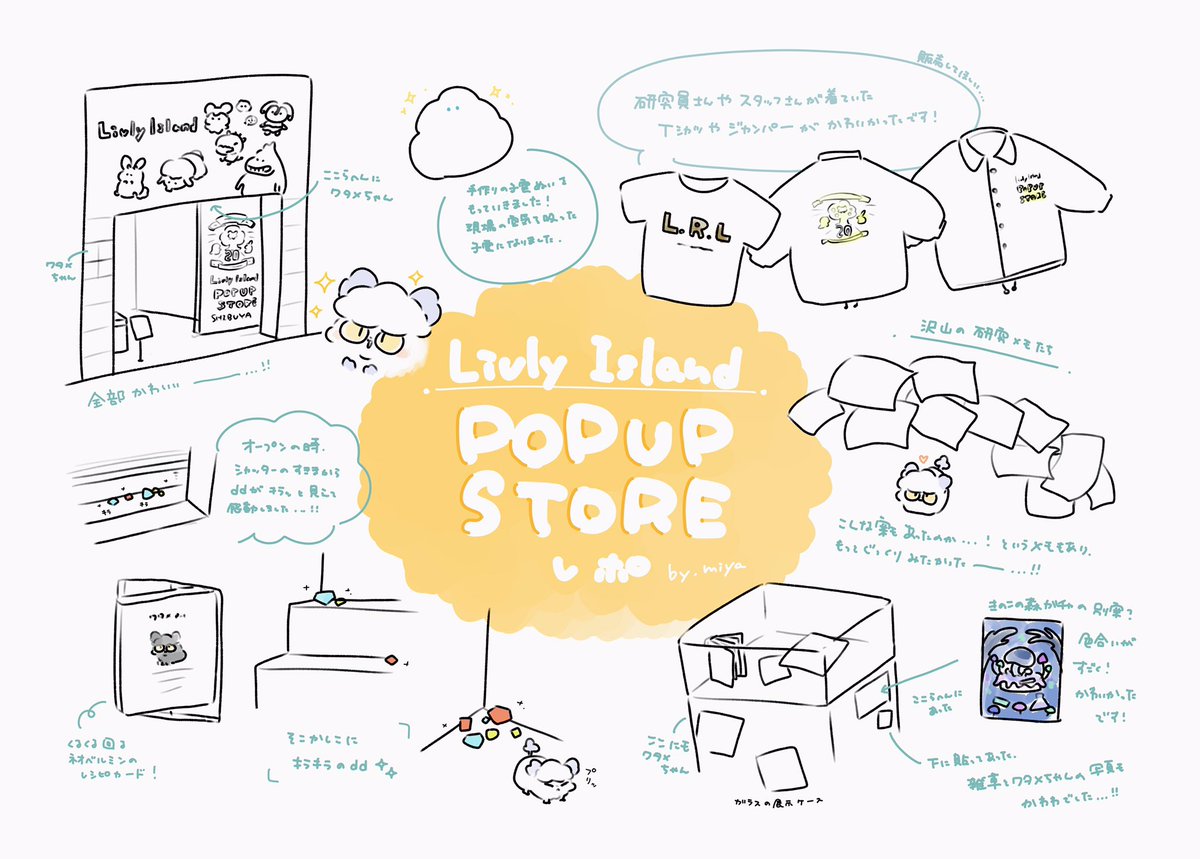 Livly Island
ここらへんに
ワタメちゃん
ワタメ
ちゃん
20
Livly Island
POPUP
STORE
SHIBUYA
全部かわいい ―― …!!
手作りの子雲ぬいを
もっていきました!
現場の空気を吸った
子雲になりました.
販売してほしい…
研究員さんや スタッフさんが着ていた
Tシャツや ジャンパーが かわいかったです!
L.R.L
20
Livly Island
POPUP
STORE
沢山の 研究メモたち
こんな案もあったのか…! というメモもあり.
もっとじっくり みたかった ―― …!!
Livly Island
POPUP
STORE
レポ by.miya
オープンの時.
シャッターのすきまから
ddがキラッと見えて
感動しました…!!
キラ
キラ
くるくる回る
ネオベルミンの
レシピカード!
そこかしこに
キラキラのdd
プリッ
ここにも
ワタメ
ちゃん
ガラスの展示ケース
ここらへんに
あった
きのこの森ガチャの 別案?
色合いが
すごく!
かわいかった
です!
下に貼ってあった.
雑草とワタメちゃんの写真も
かわわでした…!!